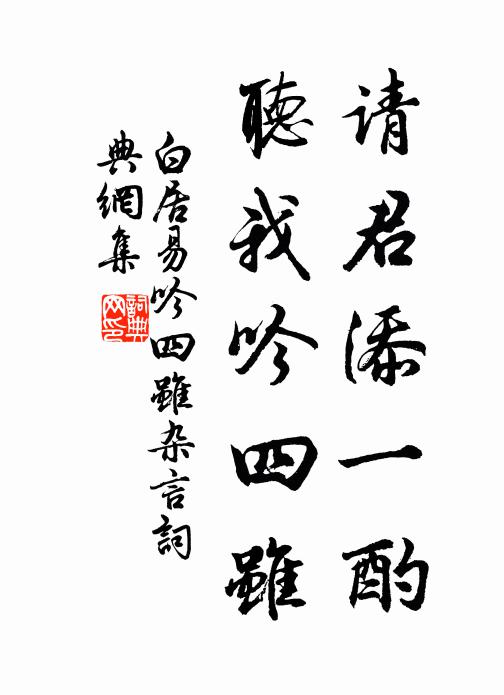 请君添一酌
聽我吟四雖
白居易吟四雖杂言詞
典網集
詞典网印